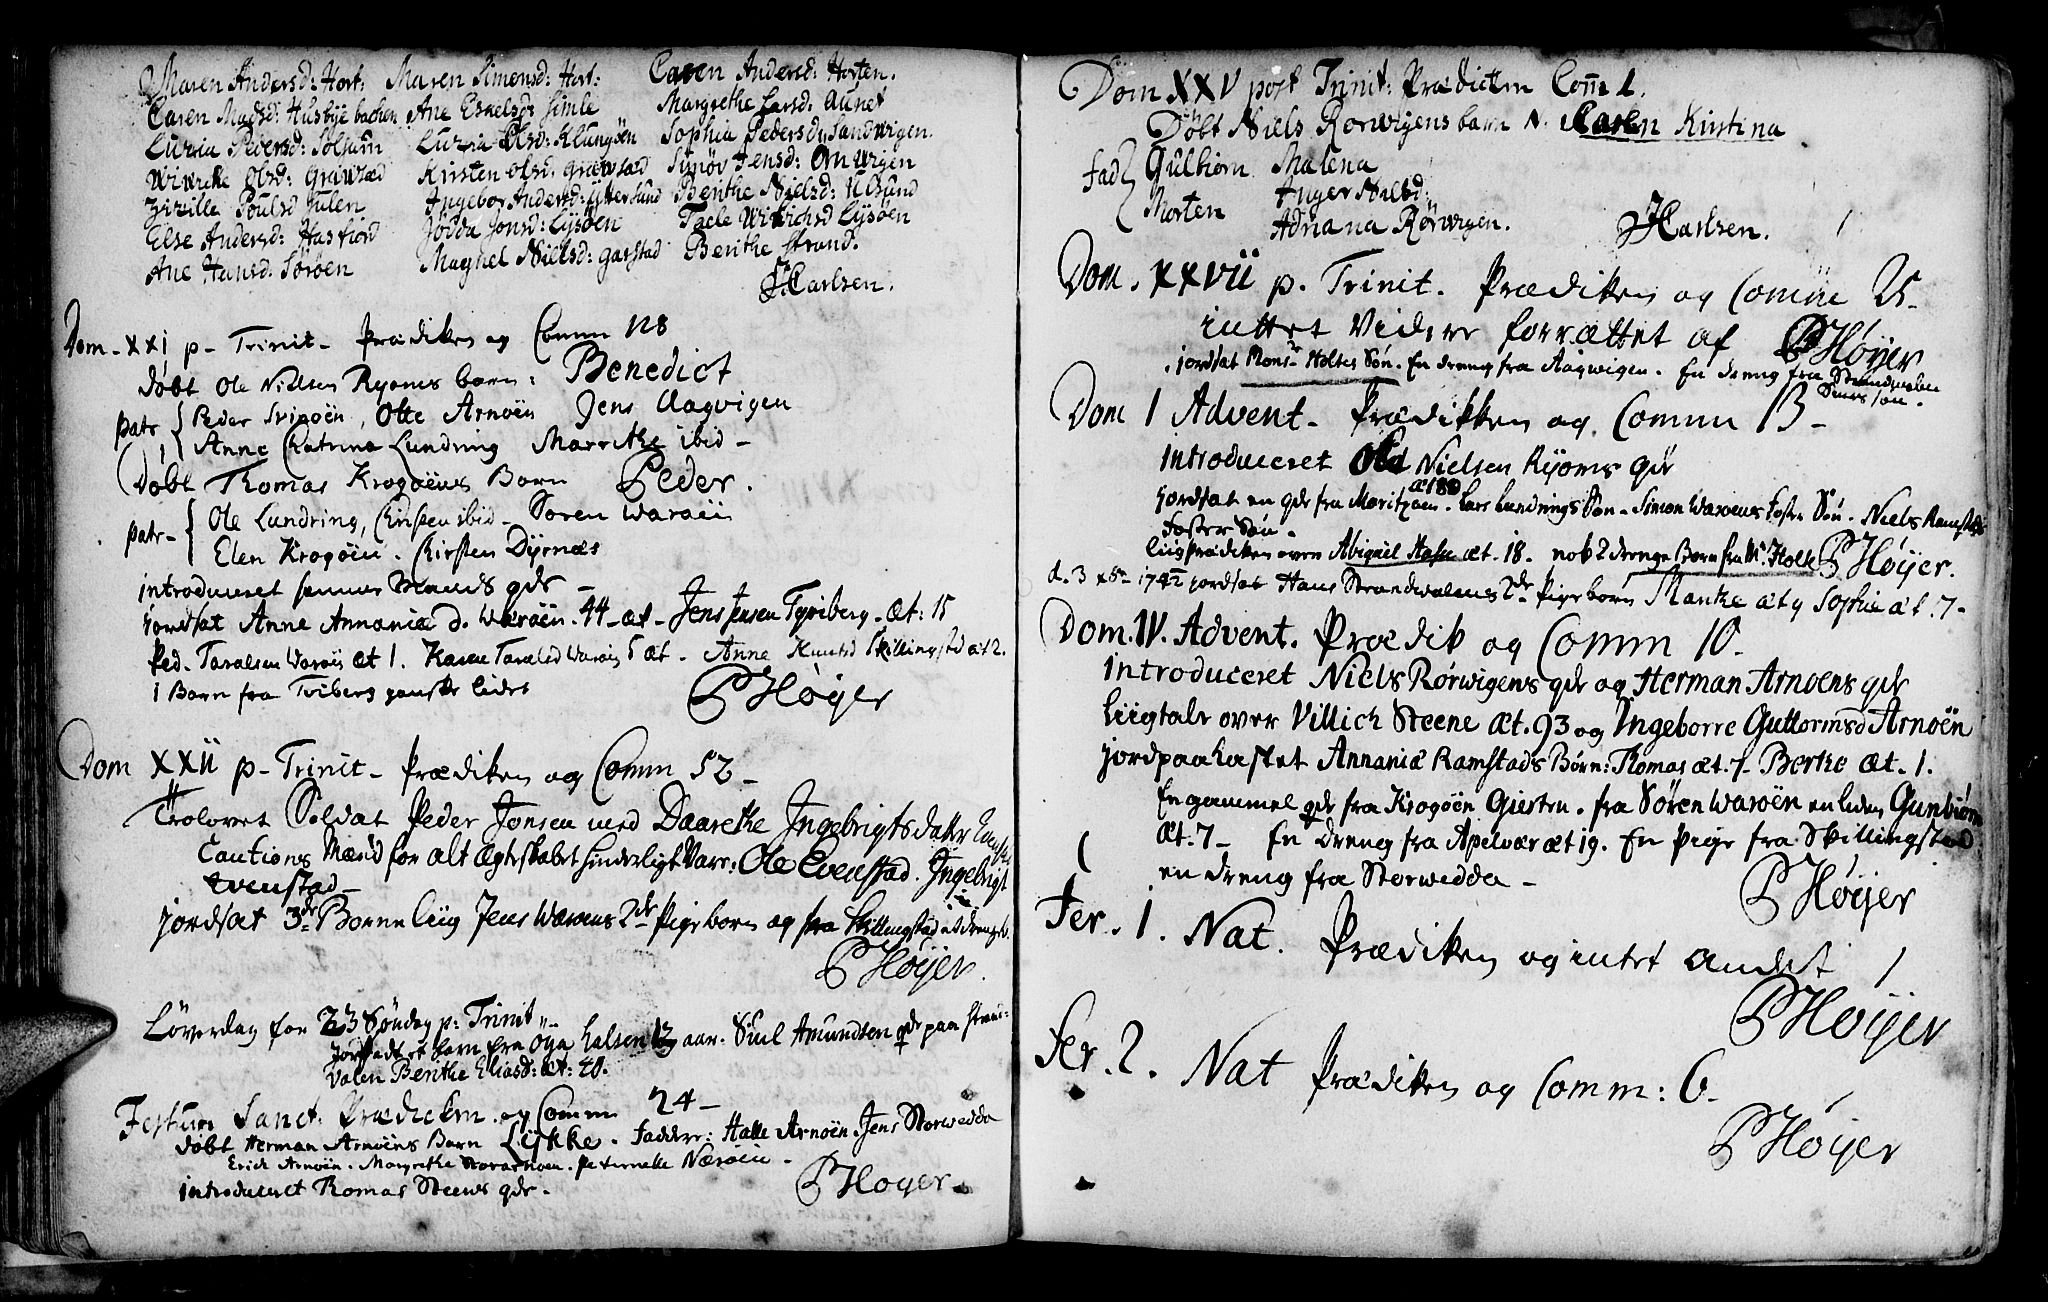 Maren Andersd: Hort: Maren Simensd: Hort: Caren Andersd: Horten.
Caren Madsd: Husbye bachen Ane Eskelsd: Simle Margrethe Larsd: Aunet
Luzia Pedersd: Solsum Luzia Olsd: Klungöen Sophia Pedersd: Sandwigen.
Wiwiche Olsd: Grawstad Kirsten Olsd: Grawstad Synöv Jensd: Omwigen
Zizille Poulsd Julen Ingebor Andersd: Ytter sund Berithe Nielsd: Ulsund
Else Andersd: Hasfiord Jödda Jonsd: Lysöen Taele Wibichsd Lysöen
Ane Hansd. Söröen Maghel Nielsd: Garstad Berithe Strand.
J Carlsen.
Dom. XXI p. Trinit. Prædiken og Comm 128
döbt Ole Nielsen Ryoms barn: Benedict
patr. Peder Svinöen, Otte Arnöen Jens Aagvigen
Anne Catrina Lundring Marrethe ibid.
Döbt Thomas Krogöens Barn Peder.
patr. Ole Lundring, Cristen ibid. Sören Waröen
Elen Krogöen. Kirsten Dyrnæs
introduceret samme Mands qde
jordsat Anne Annaniæ d. Waröen. 44 æt. Jens Jensen Tyriberg. Æt: 15
Ped. Taralsen Waröe æt 1. Karen Taralsd Waröe 5 æt. Anne Knutsd Skillingstd æt 2.
1 Barn fra Triberg ganske lidet
P Höyer
Dom XXII p. Trinit. Prædiken og Comm 52.
Trolovet Soldat Peder Jonsen med Daarethe Ingebrigtsdatter
Cautions Mænd for alt ægteskabet hinderligt Vare: Ole Evenstad. Ingebrigt
Evenstad.
jordsat 3de Börne liig Jens Waröens 2de Pige börn og fra Skillingstad et drenge b.
P Höyer.
Löverdag for 23 Söndag p: Trinit.
Jordsadt et barn fra Oya halsen 12 aar. Siul Amundsen qde paa Strand:
valen Berithe Eliasd: æt: 40.
Festum Sanct: Prædiken. og Comm 24.
döbt Herman Arnöens Barn Lykke. Faddere: Halle Arnöen. Jens Storwedda
Erich Arnöen. Margrethe. Peternelle Næröen.
introduceret Thomas Steens qde.
P Höyer.
Dom XXV post Trinit: Prædicken Com̅ 1.
Döbt Niels Rörwigens barn N. Caren Kirstina
Fad Gulbiörn Malena
Inger Nielsd:
Morten
Adriana Rörwigen.
J Carlsen.
Dom. XXVII p. Trinit. Prædiken og Comm̅ 25.
intet videre forrættet af P Höyer
jordsat Mons. Holtes Sön. En dreng fra Aagwigen. En dreng fra Strandvalen
Siurs sön.
Dom 1 Advent. Prædikken og Comm 13.
introduceret Ole Nielsen Ryoms qde
jordsat en qde fra Moritzøen. æt 80 Lars Lundrings Sön. Simon Waröens foster Sön. Niels Ramstads
Foster Sön.
liigprædiken over Abigael æt. 18. nok 2 drenge Börn fra Mr. Holte P Höyer.
d. 3 xbr. 1742 jordsat Hans Strandvalens 2de Pige börn Marthe æt 9 Sophie æt. 7.
Dom. IV. Advent. Prædik og Comm 10.
introduceret Niels Rörwigens qde og Herman Arnöens qde
liigtale over Villich Steene æt. 93 og Ingeborre Guttormsd Arnöen
jordpaakastet Annaniæ Ramstads Börn: Thomas æt. 7. Berthe æt. 1.
En gammel qde fra Krogöen Giertru. fra Sören Waröen en liden Gunbiörn
æt. 7. En dreng fra Apelvær æt 19. En Pige fra Skillingstad
en dreng fra Storwedda.
P Höyer
Fer. 1. Nat. Prædiken og intet andet
P Höyer
Fer. 2. Nat Prædiken og Comm: 6.
P Höyer